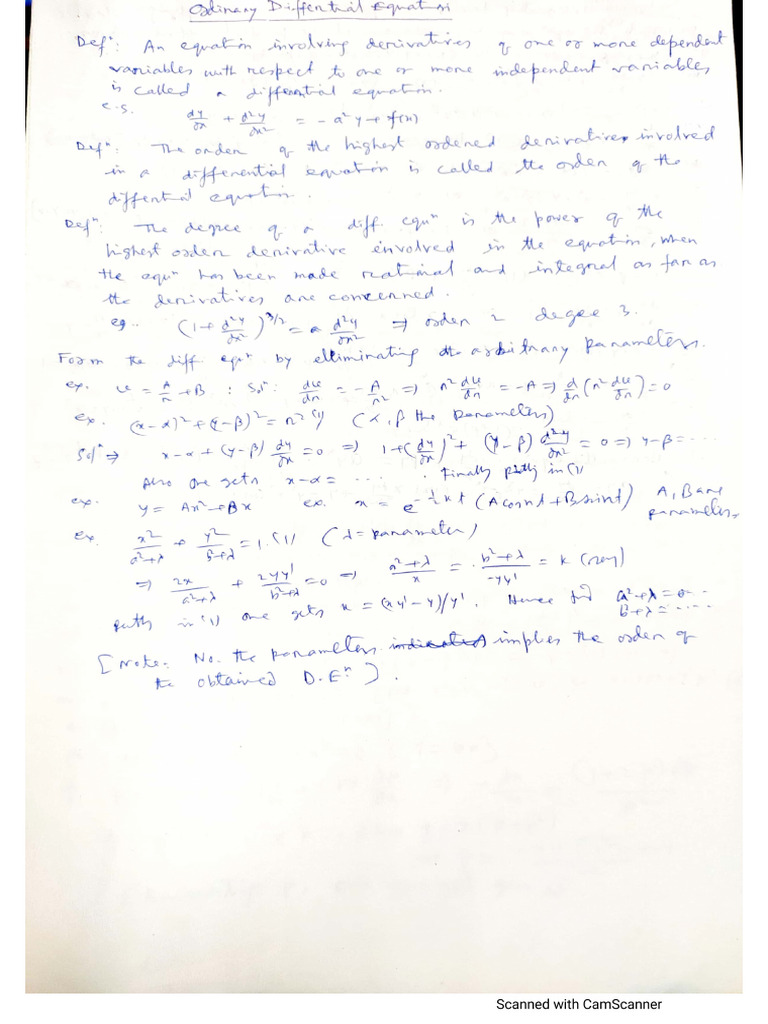 Ordinary Differential Equation
Defⁿ: An equation involving derivatives of one or more dependent
variables with respect to one or more independent variables
is called a differential equation.
e.g. dy/dx + d²y/dx² = -a²y + f(x)
Defⁿ: The order of the highest ordered derivatives involved
in a differential equation is called the order of the
diffential equation.
Defⁿ: The degree of a diff. equⁿ is the power of the
highest order derivative envolved in the equation, when
the equⁿ has been made rational and integral as far as
the derivatives are concerned.
eg. (1 + d²y/dx²)^3/2 = a d²y/dx² ⇒ order 2 degree 3.
Form the diff. equⁿ by elliminating the arbitrary parameters.
ex. u = A/r + B : Solⁿ: du/dr = -A/r² ⇒ r² du/dr = -A ⇒ d/dr (r² du/dr) = 0
ex. (x-α)² + (y-β)² = r² (1) (α, β the parameters)
Solⁿ ⇒ x-α + (y-β) dy/dx = 0 ⇒ 1 + (dy/dx)² + (y-β) d²y/dx² = 0 ⇒ y-β = ....
Also one gets x-α = .... . Finally putting in (1)
ex. y = Ax² + Bx ex. x = e^-½kt (A cosnt + B sinnt) A, B are
parameters.
ex. x²/a²+λ + y²/b²+λ = 1. (1) (λ = parameter)
⇒ 2x/a²+λ + 2yy'/b²+λ = 0 ⇒ a²+λ/x = b²+λ/-yy' = k (say)
putting in (1) one gets k = (xy'-y)/y'. Hence find a²+λ = ....
b²+λ = ....
[Note: No. the parameters implies the order of
the obtained D.Eⁿ.].
Scanned with CamScanner